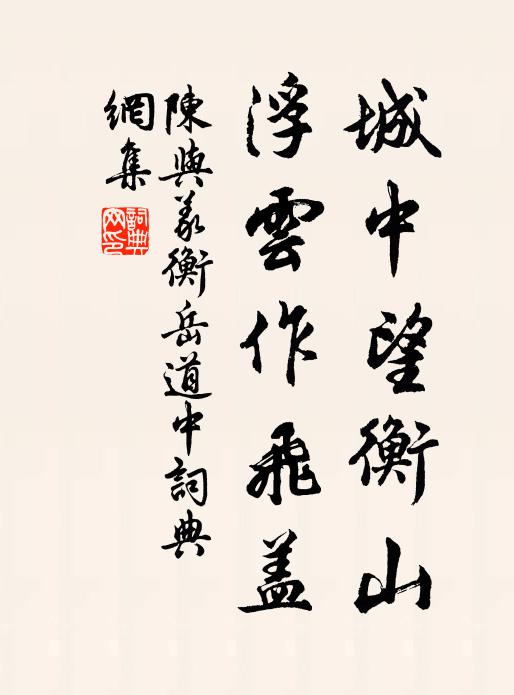 城中望衡山
浮雲作飛蓋
陳與義衡岳道中詞典
網集
詞典
网印